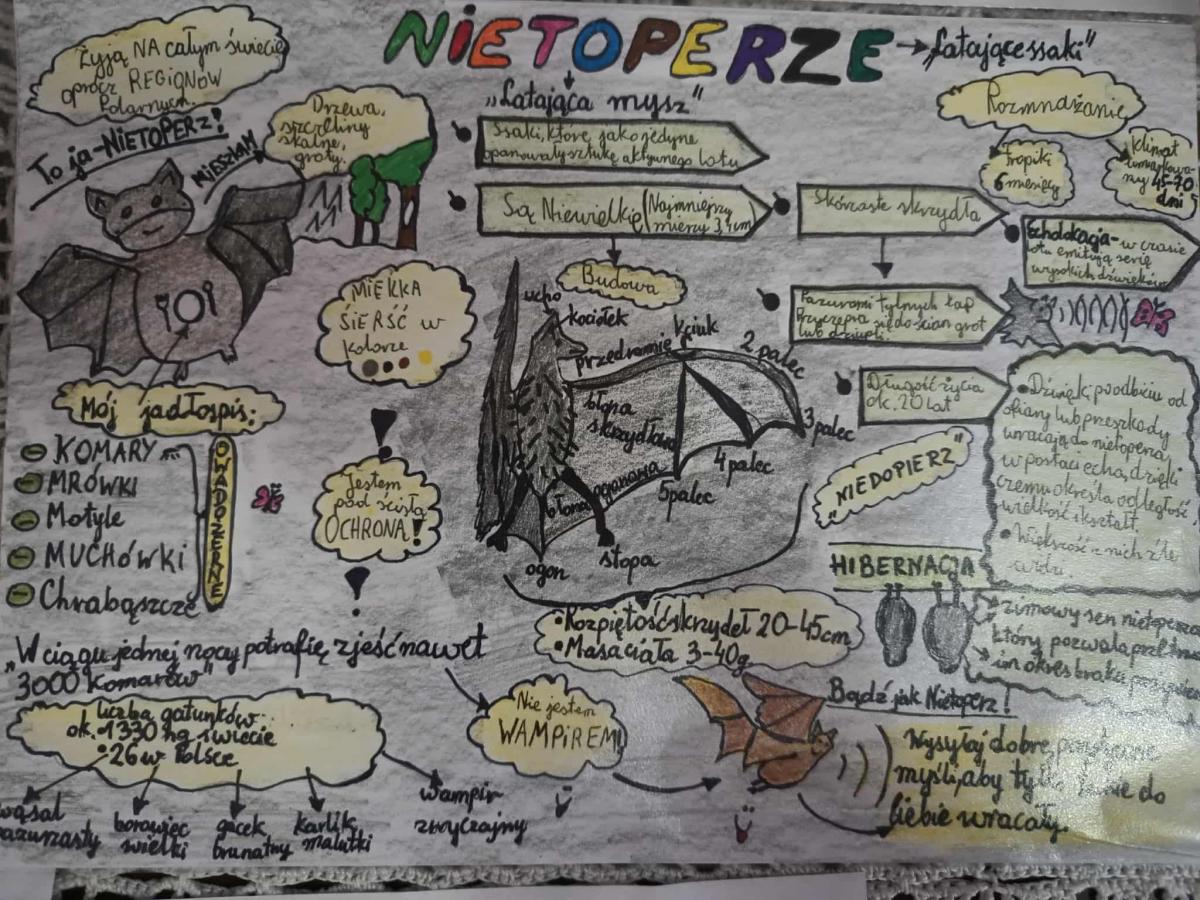 NIETOPERZE
→ „Latające ssaki"
Żyją NA całym świecie
oprócz REGIONÓW
Polarnych.
To ja - NIETOPERZ!
MIESZKAM
Drzewa,
szczeliny
skalne,
groty.
„Latająca mysz"
Ssaki, które jako jedyne
opanowały sztukę aktywnego lotu
Są Niewielkie (Najmniejszy
mierzy 3,4cm)
Rozmnażanie
tropiki
6 miesięcy
klimat
umiarkowa-
ny 45-70
dni
Skórzaste skrzydła
Echolokacja - w czasie
lotu emitują serię
wysokich dźwięków
Pazurami tylnych łap
Przyczepia się do ścian grot
lub dziupli.
Długość życia
ok. 20 lat
• Dzięki odbiciu od
ofiary lub przeszkody
wracają do nietoperza
w postaci echa, dzięki
czemu określa odległość
wielkość i kształt.
• Większość z nich źle
widzi.
„NIEDOPIERZ"
MIĘKKA
SIERŚĆ w
kolorze
Budowa
ucho
koziołek
przedramię
kciuk
2 palec
3 palec
4 palec
5 palec
błona
skrzydłowa
błona ogonowa
ogon
stopa
Mój jadłospis:
KOMARY
MRÓWKI
Motyle
MUCHÓWKI
Chrabąszcze
OWADOŻERNE
Jestem
pod ścisłą
OCHRONĄ!
HIBERNACJA
zimowy sen nietoperza
który pozwala
im okres braku
• Rozpiętość skrzydeł 20-45cm
• Masa ciała 3-40g
„W ciągu jednej nocy potrafię zjeść nawet
3000 komarów"
liczba gatunków
ok. 1330 na świecie
• 26 w Polsce
wąsal
borowiec
wielki
gacek
brunatny
karlik
malutki
wampir
zwyczajny
Nie jestem
WAMPIREM!
Bądź jak Nietoperz!
Wysyłaj dobre,
myśli, aby do
Ciebie wracały.